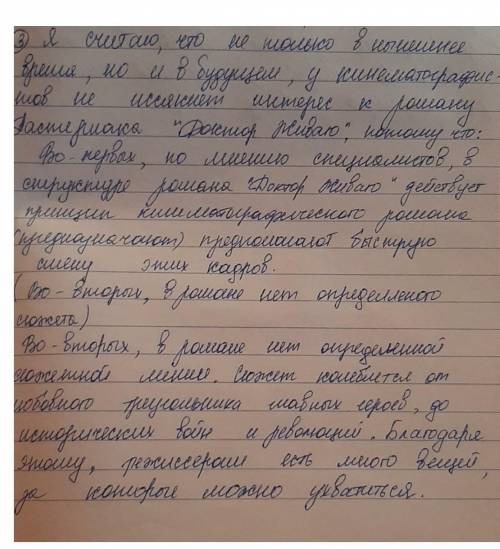 ③ Я считаю, что не только в нынешнее
время, но и в будущем, у кинематографис-
тов не иссякнет интерес к роману
Пастернака "Доктор Живаго", потому что:
Во-первых, по мнению специалистов, в
структуре романа "Доктор Живаго" действует
принцип кинематографического романа
(предназначают) предполагают быструю
смену этих кадров.
(Во-вторых, в романе нет определленого
сюжета)
Во-вторых, в романе нет определенной
сюжетной линии. Сюжет колеблется от
любовного треугольника главных героев, до
исторических войн и революций. Благодаря
этому, режиссерам есть много вещей,
за которые можно ухватиться.